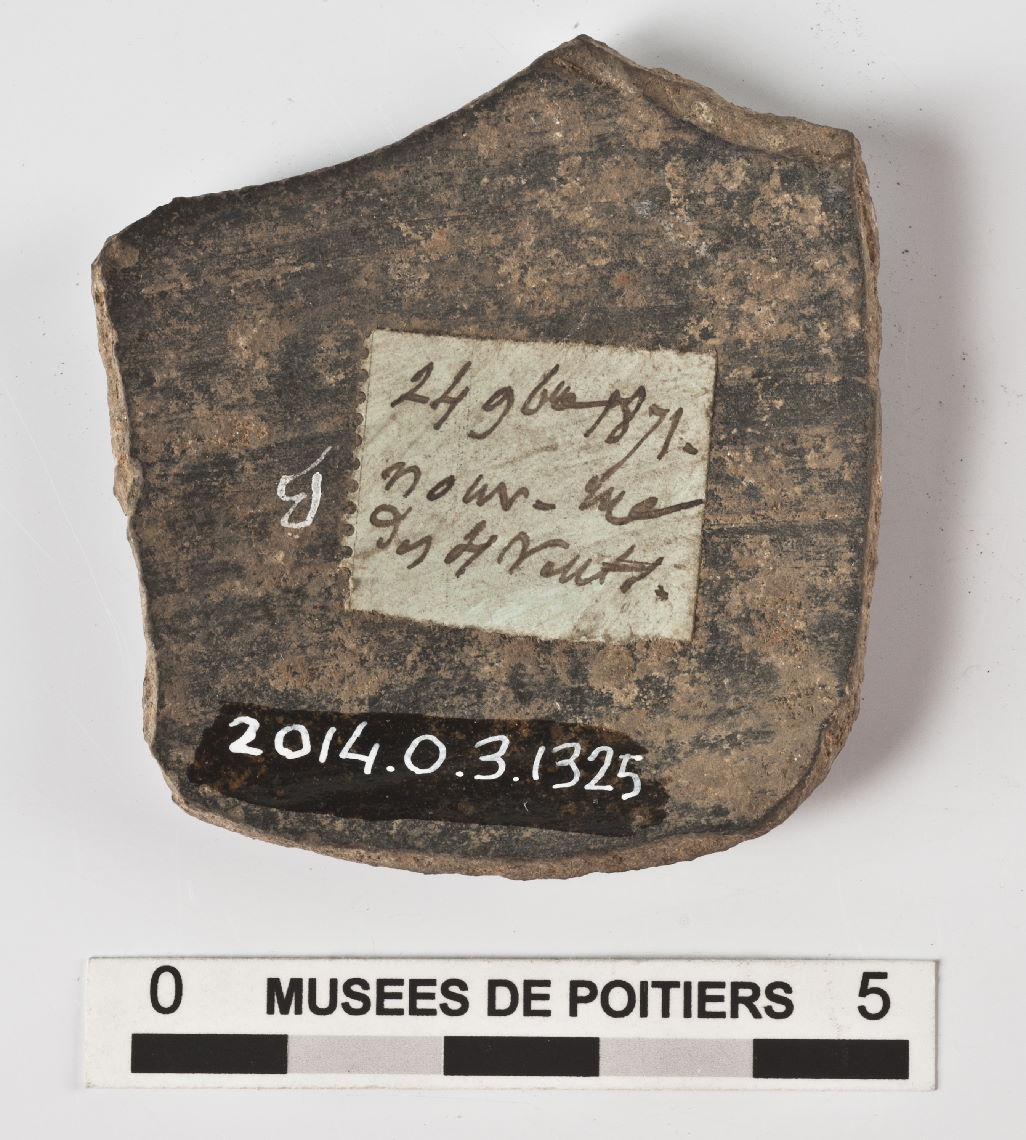 24 9bre 1871.
nouv. rue
des 4 Vents.
2014.0.3.1325
0 MUSEES DE POITIERS 5